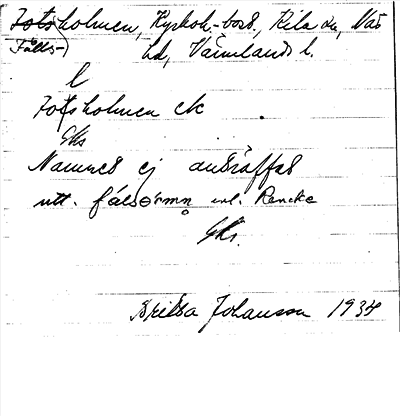 Fotsholmen, Kyrkoh.-bost., Kila sn, Näs
Fålls-) hd, Värmlands l.
l
Fotsholmen ek
GKs
Namnet ej anträffat
utt. fálsòrmn enl. Rencke
GKs.
Briksa Johansson 1934